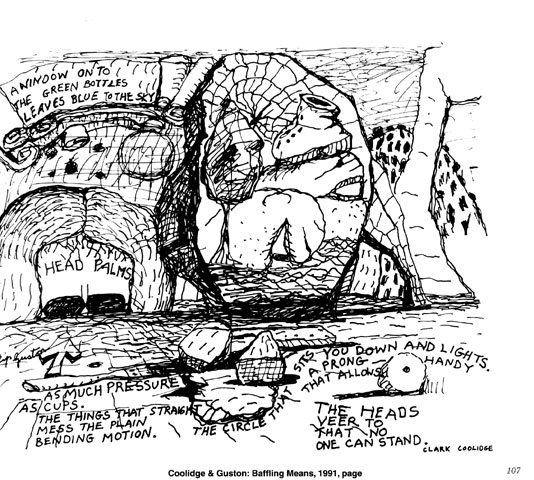 A WINDOW ON TO
THE GREEN BOTTLES
LEAVES BLUE TO THE SKY
HEAD PALMS
AS MUCH PRESSURE
AS CUPS.
THE THINGS THAT STRAIGHT
MESS THE PLAIN
BENDING MOTION.
THE CIRCLE THAT SITS YOU DOWN AND LIGHTS.
A PRONG HANDY
THAT ALLOWS
THE HEADS
VEER TO
THAT NO
ONE CAN STAND.
CLARK COOLIDGE
Coolidge & Guston: Baffling Means, 1991, page
107